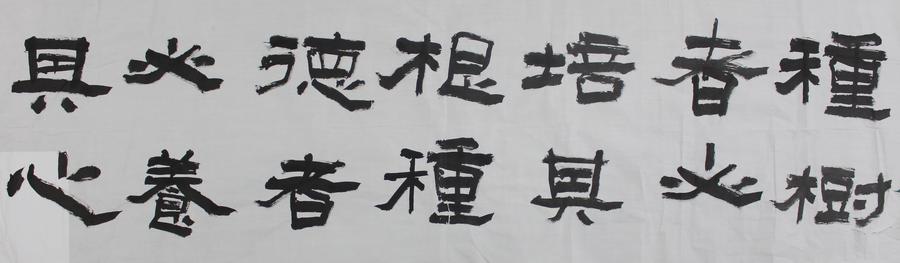 種樹
者必
培其
根種
德者
必養
其心